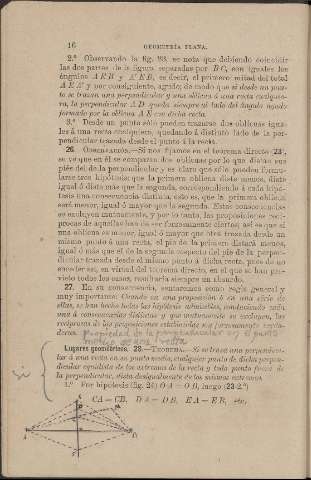 16 GEOMETRÍA PLANA.
2.º Observando la fig. 23, se nota que debiendo coincidir
las dos partes de la figura separadas por B C, son iguales los
ángulos A E B y A' E B, es decir, el primero mitad del total
A E A' y por consiguiente, agudo; de modo que si desde un pun-
to se trazan una perpendicular y una oblicua á una recta cualquie-
ra, la perpendicular A B queda siempre al lado del ángulo agudo
formado por la oblicua A E con dicha recta.
3.º Desde un punto sólo pueden trazarse dos oblicuas igua-
les á una recta cualquiera, quedando á distinto lado de la per-
pendicular trazada desde el punto á la recta.
26. OBSERVACIÓN.—Si nos fijamos en el teorema directo (23),
se ve que en él se comparan dos oblicuas por lo que distan sus
piés del de la perpendicular y es claro que sólo pueden formu-
larse tres hipótesis: que la primera oblicua diste menos, diste
igual ó diste más que la segunda, correspondiendo á cada hipó-
tesis una consecuencia distinta, esto es, que la primera oblicua
será menor, igual ó mayor que la segunda. Estas consecuencias
se excluyen mutuamente, y por lo tanto, las proposiciones recí-
procas de aquéllas han de ser forzosamente ciertas; así es que si
una oblicua es menor, igual ó mayor que otra trazada desde un
mismo punto á una recta, el pie de la primera distará menos,
igual ó más que el de la segunda respecto del pie de la perpen-
dicular trazada desde el mismo punto á dicha recta, pues de no
suceder así, en virtud del teorema directo, en el que se han pre-
visto todos los casos, resultaría siempre un absurdo.
27. En su consecuencia, sentaremos como regla general y
muy importante: Cuando en una proposición ó en una serie de
ellas, se han hecho todas las hipótesis admisibles, conduciendo cada
una á consecuencias distintas y que mutuamente se excluyen, las
recíprocas de las proposiciones establecidas son forzosamente verda-
deras. propiedad de la perpendicular en el punto
medio de una recta
Lugares geométricos. 28.—TEOREMA.—Si se traza una perpendicu-
lar á una recta en su punto medio, cualquier punto de dicha perpen-
dicular equidista de los extremos de la recta y todo punto fuera de
la perpendicular, dista desigualmente de los mismos extremos.
1.º Por hipótesis (fig. 24) O A = O B, luego (23-2.º)
CA = CB, DA = DB, EA = EB, etc.